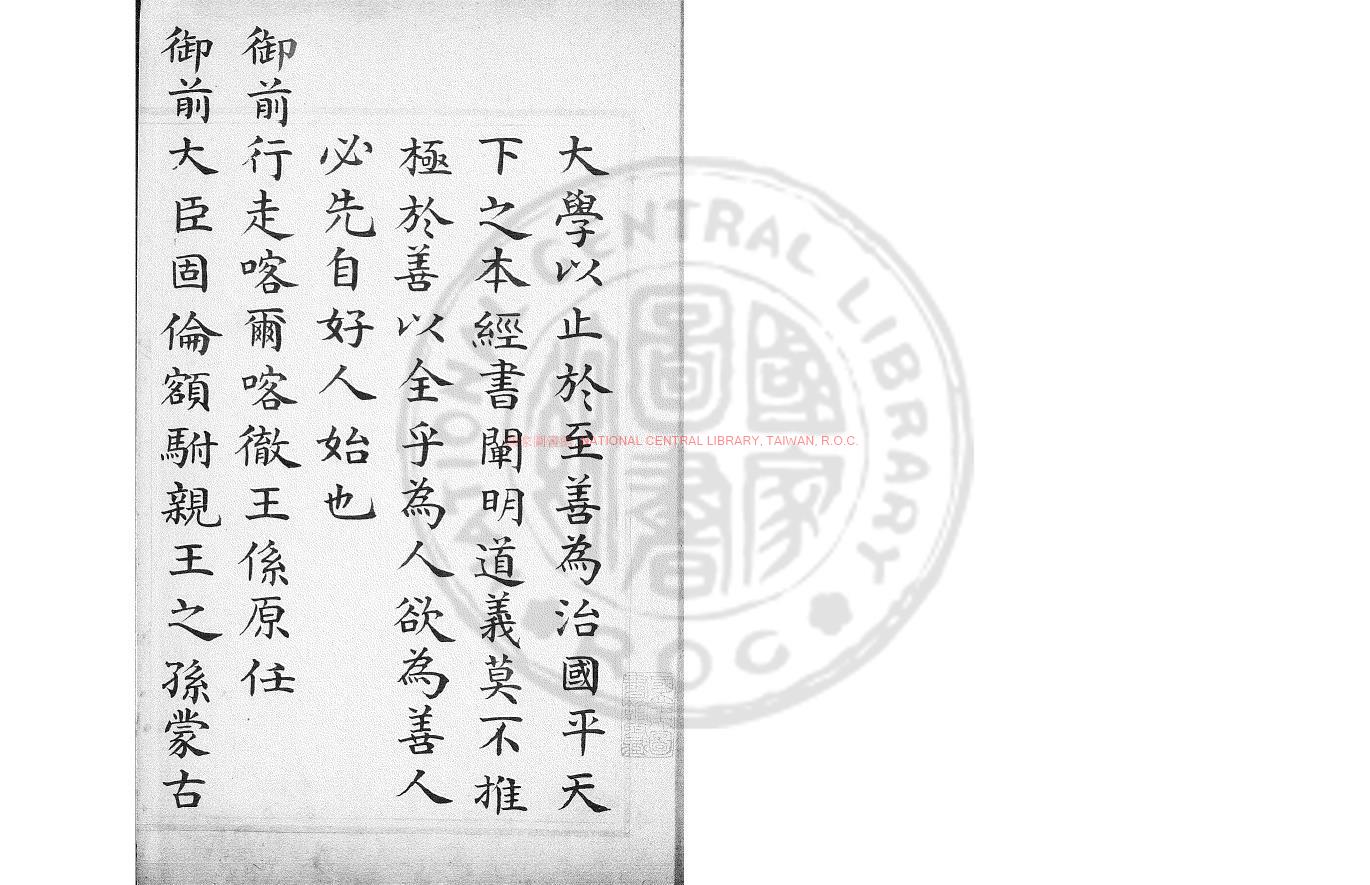 大學以止於至善為治國平天
下之本經書闡明道義莫不推
極於善以全乎為人欲為善人
必先自好人始也
御前行走喀爾喀徹王係原任
御前大臣固倫額駙親王之孫蒙古
NATIONAL CENTRAL LIBRARY
國家圖書館
R.O.C
國家圖書館 NATIONAL CENTRAL LIBRARY, TAIWAN, R.O.C.